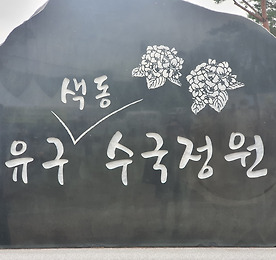 색동
유구 수국정원